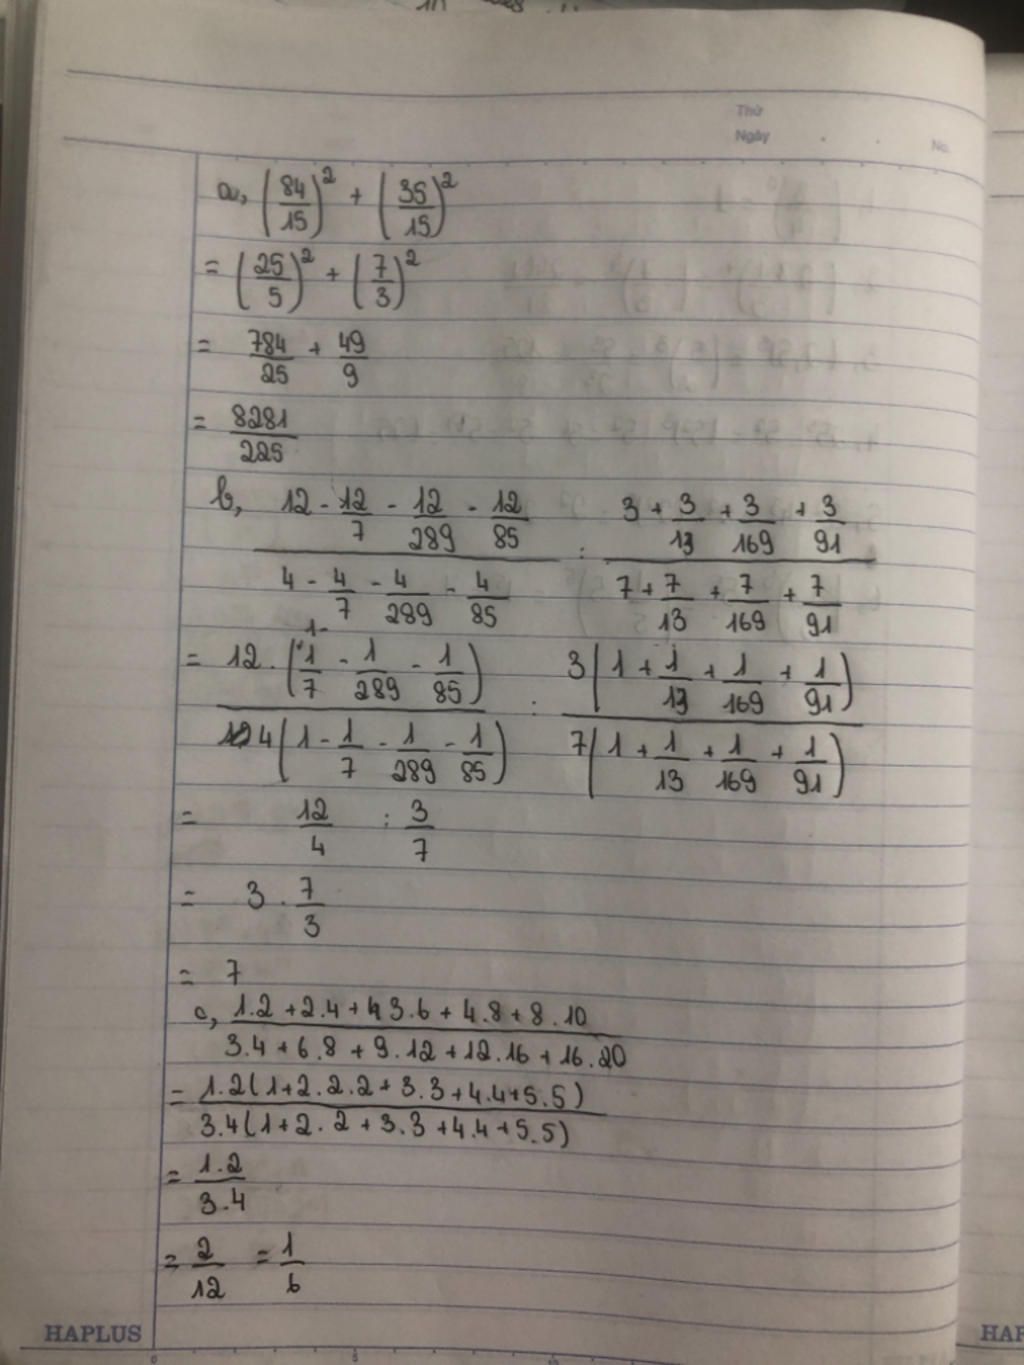 Thứ
Ngày
No.
a, (84/15)² + (35/15)²
= (25/5)² + (7/3)²
= 784/25 + 49/9
= 8281/225
b, (12 - 12/7 - 12/289 - 12/85)/(4 - 4/7 - 4/289 - 4/85) : (3 + 3/13 + 3/169 + 3/91)/(7 + 7/13 + 7/169 + 7/91)
= 12.(1- 1/7 - 1/289 - 1/85)/4(1 - 1/7 - 1/289 - 1/85) : 3(1 + 1/13 + 1/169 + 1/91)/7(1 + 1/13 + 1/169 + 1/91)
= 12/4 : 3/7
= 3 . 7/3
= 7
c, (1.2 + 2.4 + 3.6 + 4.8 + 8.10)/(3.4 + 6.8 + 9.12 + 12.16 + 16.20)
= 1.2(1+2.2.2+3.3+4.4+5.5)/3.4(1+2.2+3.3+4.4+5.5)
= 1.2/3.4
= 2/12 = 1/6
HAPLUS
HAP